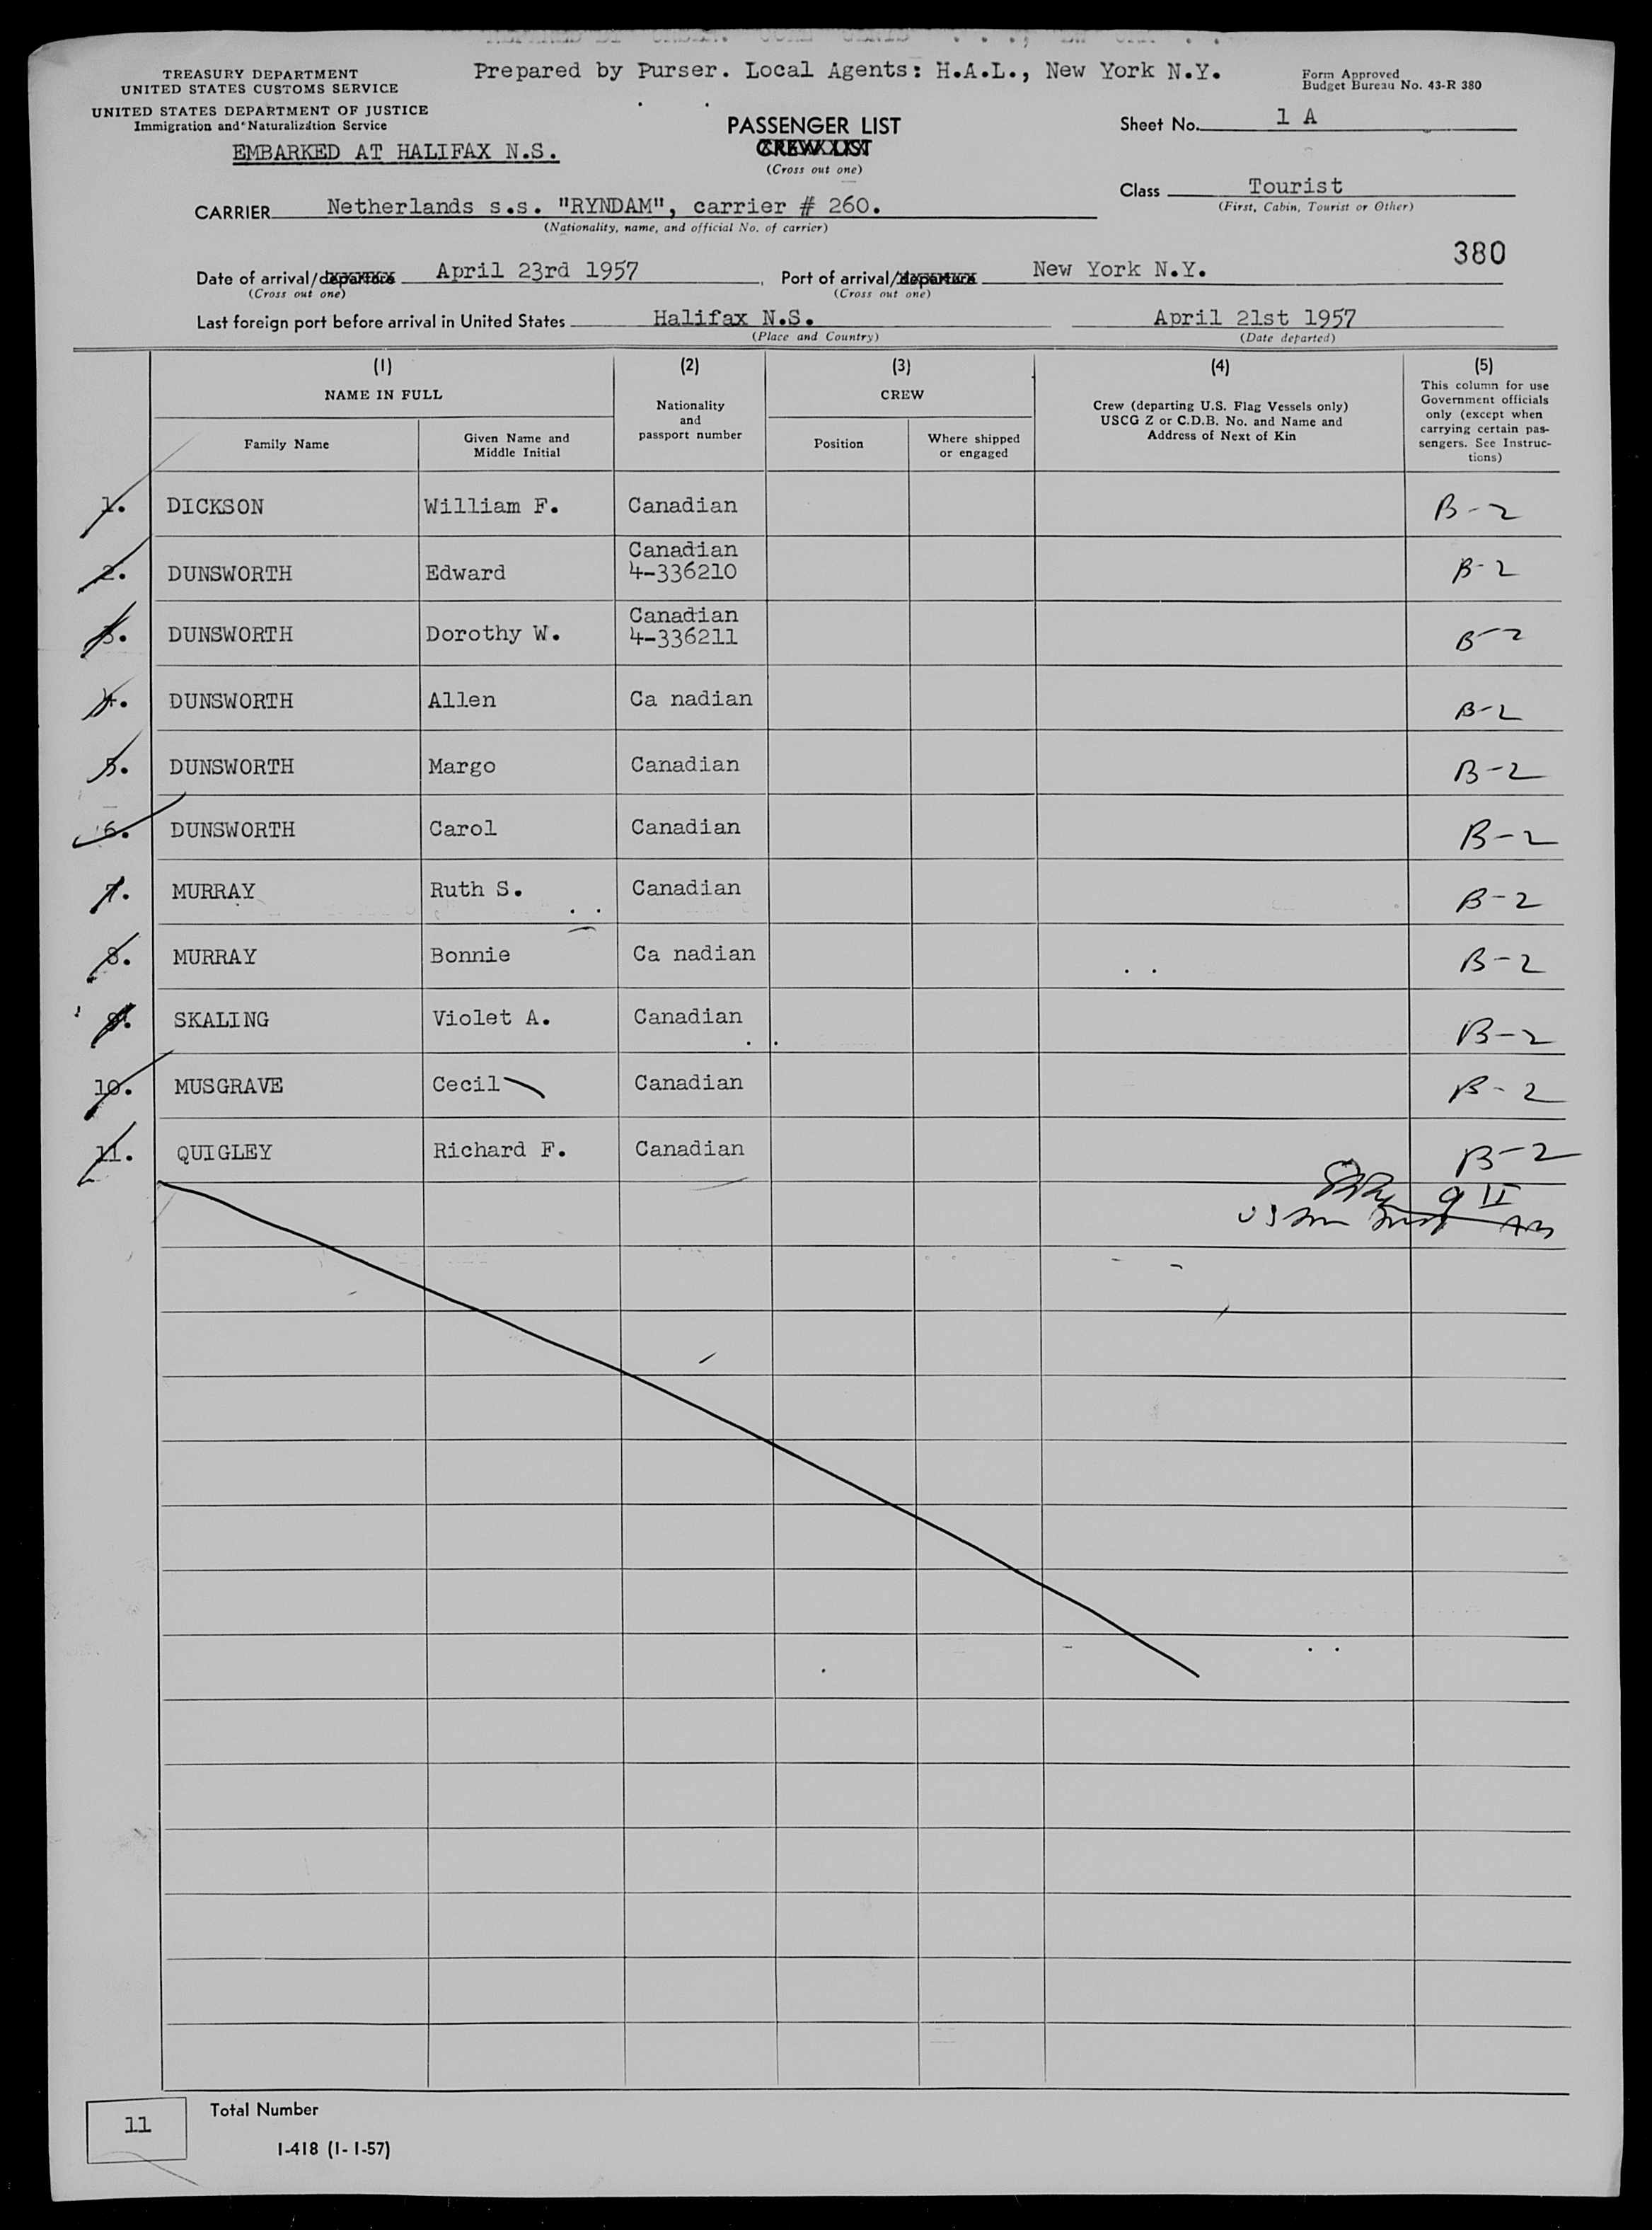 Prepared by Purser. Local Agents: H.A.L., New York N.Y.
TREASURY DEPARTMENT
UNITED STATES CUSTOMS SERVICE
UNITED STATES DEPARTMENT OF JUSTICE
Immigration and Naturalization Service
EMBARKED AT HALIFAX N.S.
Form Approved
Budget Bureau No. 43-R 380
PASSENGER LIST
CREW LIST
(Cross out one)
Sheet No. 1 A
Class Tourist
(First, Cabin, Tourist or Other)
CARRIER Netherlands s.s. "RYNDAM", carrier # 260.
(Nationality, name, and official No. of carrier)
380
Date of arrival/departure April 23rd 1957, Port of arrival/departure New York N.Y.
(Cross out one) (Cross out one)
Last foreign port before arrival in United States Halifax N.S. April 21st 1957
(Place and Country) (Date departed)
(1) (2) (3) (4) (5)
NAME IN FULL
Family Name
Given Name and
Middle Initial
Nationality
and
passport number
CREW
Position
Where shipped
or engaged
Crew (departing U.S. Flag Vessels only)
USCG Z or C.D.B. No. and Name and
Address of Next of Kin
This column for use
Government officials
only (except when
carrying certain pas-
sengers. See Instruc-
tions)
1. DICKSON William F. Canadian B-2
2. DUNSWORTH Edward Canadian 4-336210 B-2
3. DUNSWORTH Dorothy W. Canadian 4-336211 B-2
4. DUNSWORTH Allen Ca nadian B-2
5. DUNSWORTH Margo Canadian B-2
6. DUNSWORTH Carol Canadian B-2
7. MURRAY Ruth S. Canadian B-2
8. MURRAY Bonnie Ca nadian B-2
9. SKALING Violet A. Canadian B-2
10. MUSGRAVE Cecil Canadian B-2
11. QUIGLEY Richard F. Canadian B-2
11
Total Number
I-418 (1-1-57)